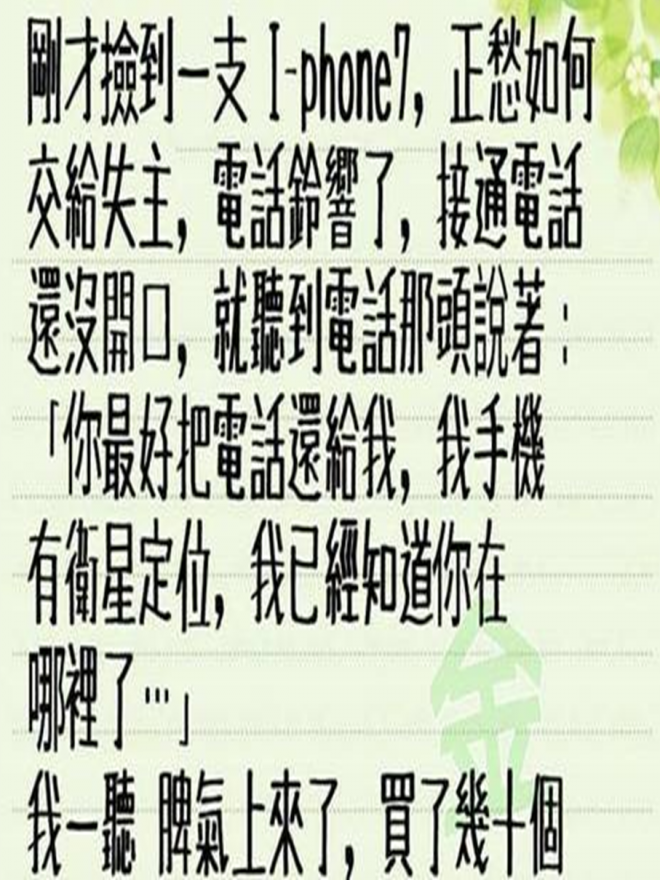 剛才撿到一支 I-phone7, 正愁如何
交給失主, 電話鈴響了, 接通電話
還沒開口, 就聽到電話那頭說著：
「你最好把電話還給我, 我手機
有衛星定位, 我已經知道你在
哪裡了…」
我一聽 脾氣上來了, 買了幾十個
金